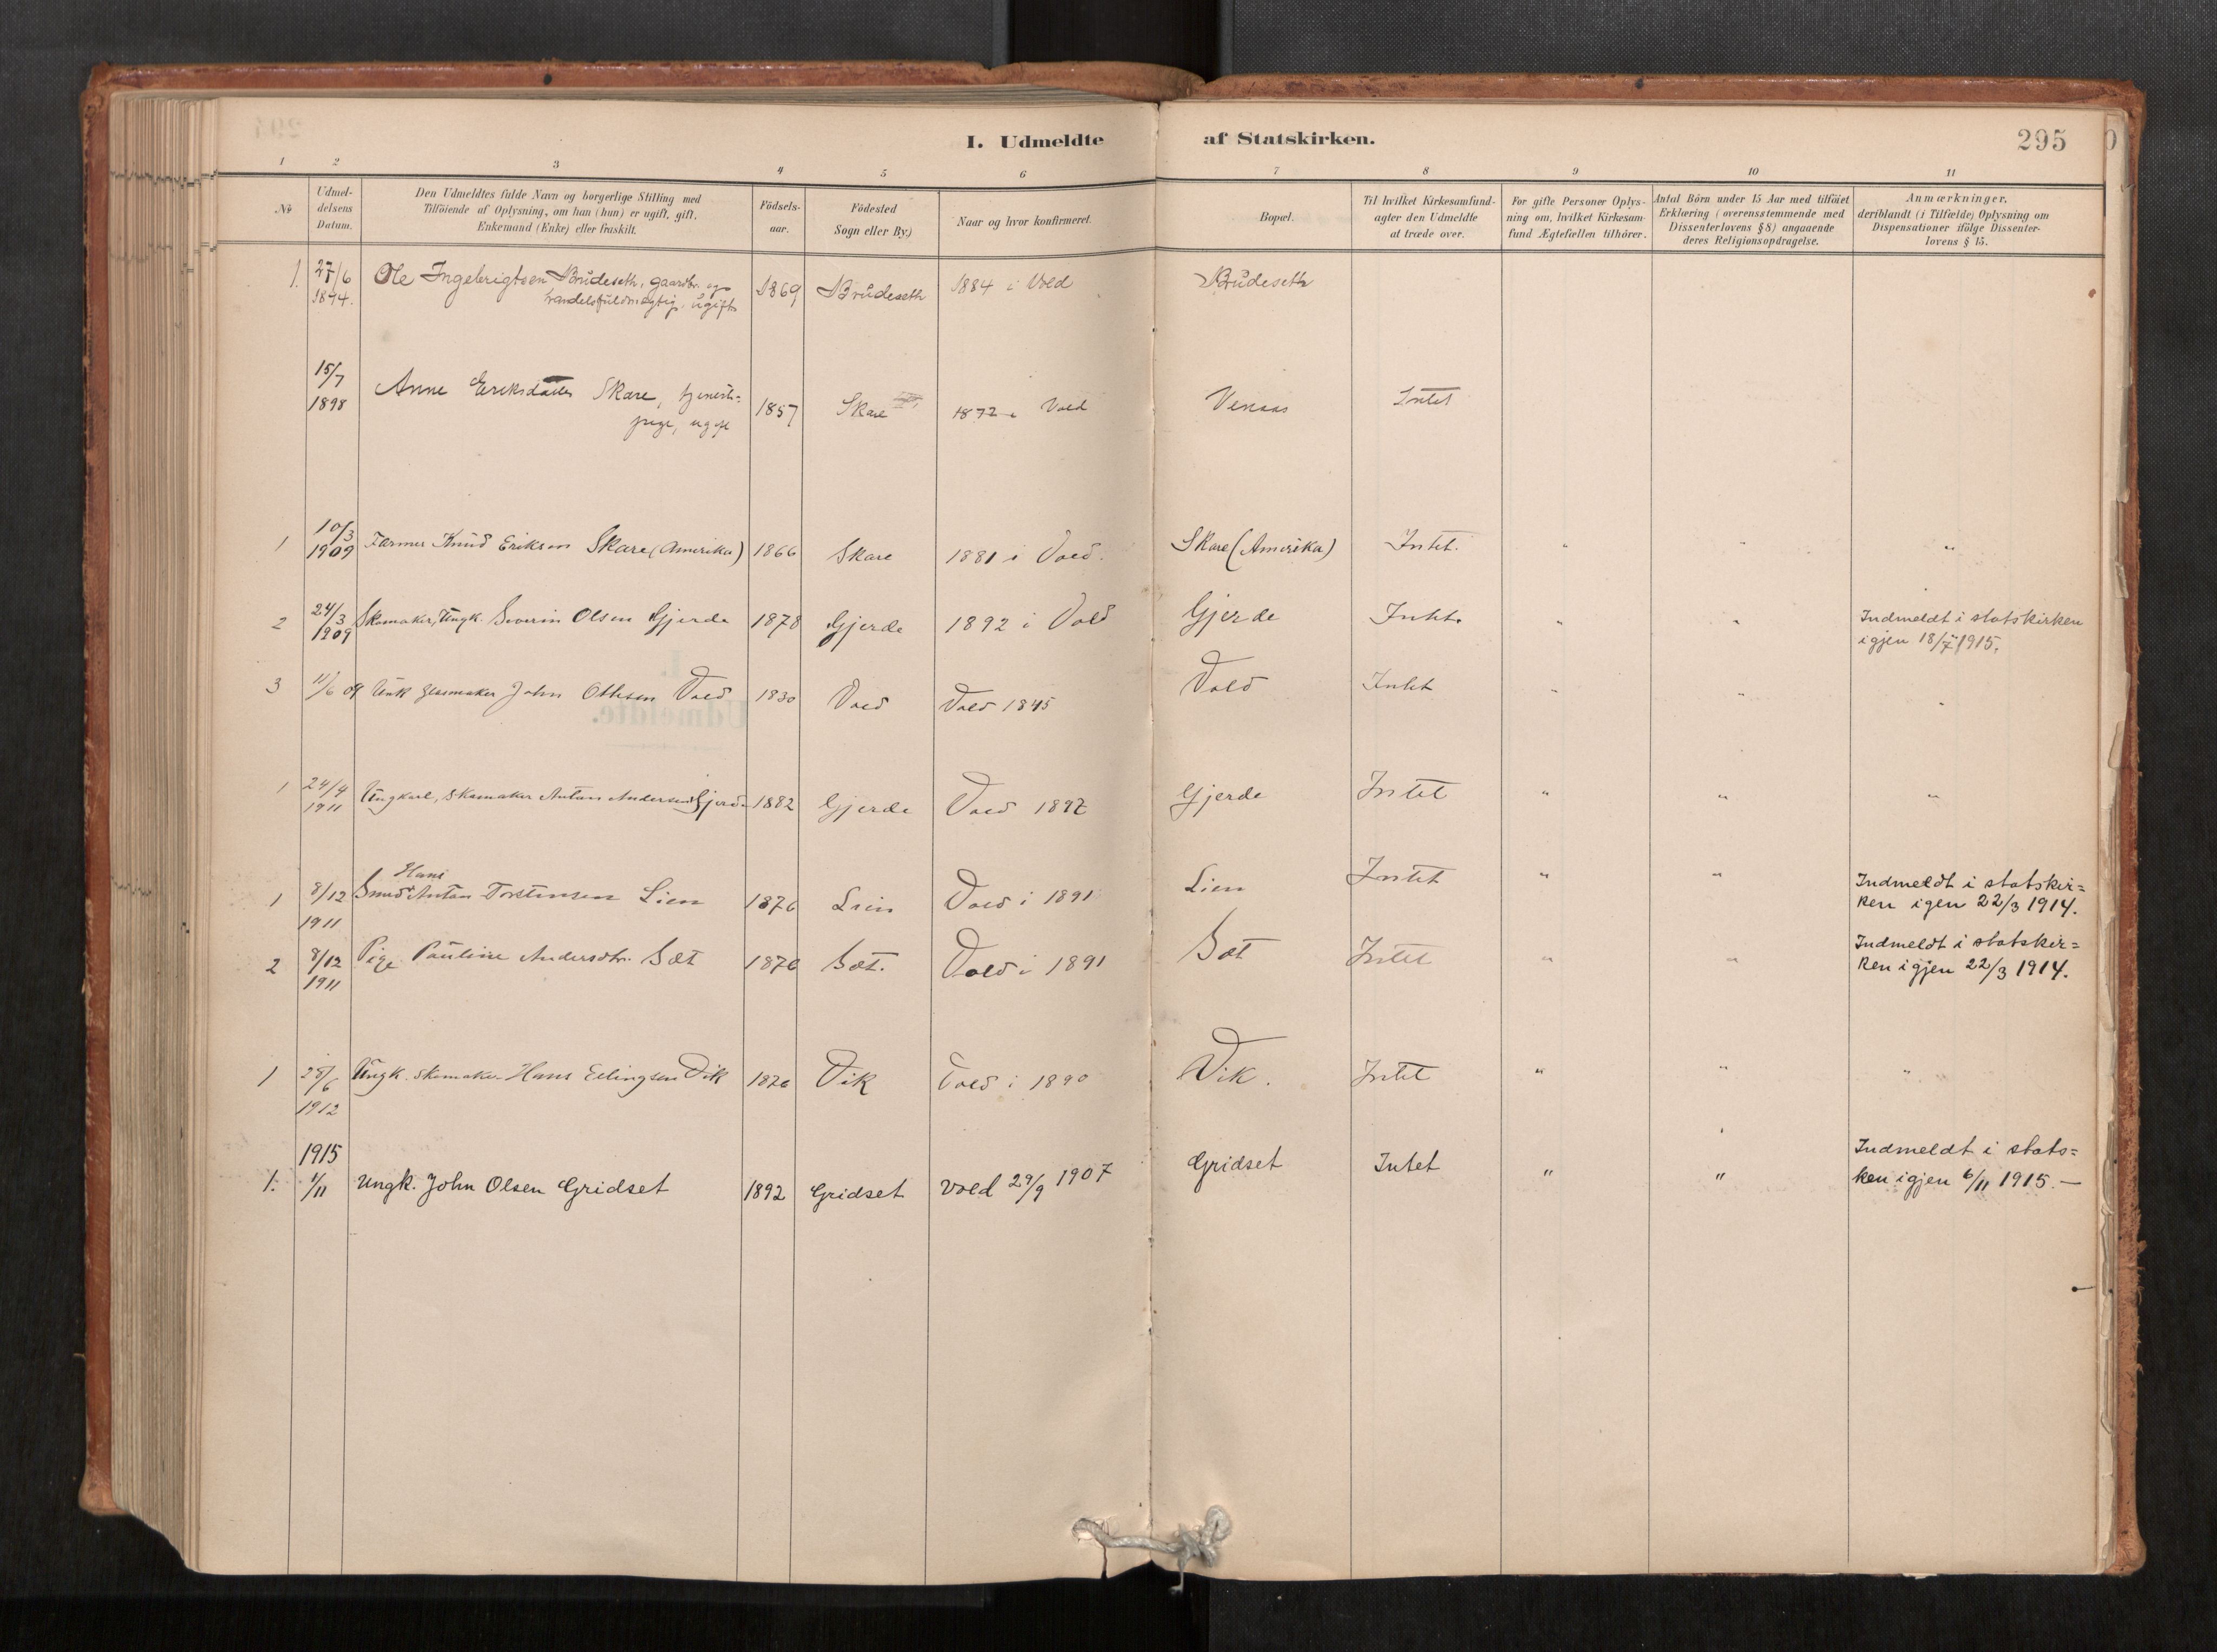 I. Udmeldte af Statskirken.
295
1 2 3 4 5 6 7 8 9 10 11
No
Udmel-
delsens
Datum.
Den Udmeldtes fulde Navn og borgerlige Stilling med
Tilföiende af Oplysning, om han (hun) er ugift, gift,
Enkemand (Enke) eller fraskilt.
Födsels-
aar.
Födested
Sogn eller By.)
Naar og hvor konfirmeret.
Bopæl.
Til hvilket Kirkesamfund-
agter den Udmeldte
at træde over.
For gifte Personer Oplys-
ning om, hvilket Kirkesam-
fund Ægtefællen tilhörer.
Antal Börn under 15 Aar med tilföiet
Erklæring (overensstemmende med
Dissenterlovens § 8) angaaende
deres Religionsopdragelse.
Anmærkninger,
deriblandt (i Tilfælde) Oplysning om
Dispensationer ifölge Dissenter-
lovens § 15.
1. 27/6 Ole Ingebrigtsen Brudeseth, gaardbr. og 1869 Brudeseth 1884 i Vold Brudeseth
1894. handelsfuldmægtig, ugift
15/7
1898 Anne Eriksdatter Skare, tjeneste= 1857 Skare 1872 i Vold Intet
pige, ugift
1 10/3
1909 Farmer Knud Eriksen Skare (Amerika) 1866 Skare 1881 i Vold. Skare (Amerika) Intet. " " "
2 24/3
1909 Skomaker, Ungk. Severin Olsen Gjerde 1878 Gjerde 1892 i Vold Gjerde Intet. " " Indmeldt i statskirken
igjen 18/7 1915.
3 11/6 09 John Othsen Vold 1830 Vold Vold 1845 Vold Intet " " "
1 24/4
1911 Ungkarl, skomaker Anton Andersen Gjerde 1882 Gjerde Vold 1897 Gjerde Intet " " "
Hans
1 8/12
1911 Smed Anton Torstensen Lien 1876 Lien Vold i 1891 Lien Intet " " Indmeldt i statskir=
ken igen 22/3 1914.
2 8/12
1911 Pige Pauline Andersdtr. Sæt 1876 Sæt. Vold i 1891 Sæt Intet " " Indmeldt i statskir=
ken igjen 22/3 1914.
1 28/6
1912 Ungk. skomaker Hans Ellingsen Vik 1876 Vik Vold i 1890 Vik. Intet " " "
1915
1. 4/11 Ungk. John Olsen Gridset 1892 Gridset Vold 29/9 1907 Gridset Intet " " Indmeldt i stats=
ken igjen 6/11 1915. —